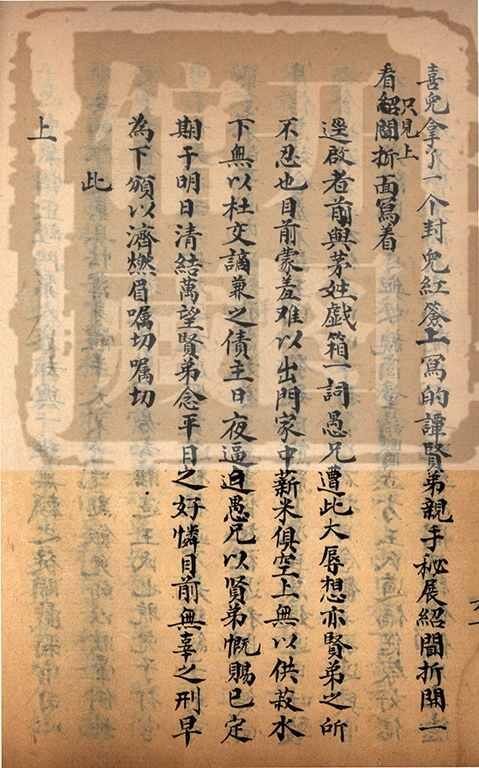 喜児拿了一个封兒紅簽上寫的譚賢弟親手秘展紹聞折開一
看紹聞折面寫着
只見上
逕啟者前與茅姓戲箱一詞愚兄遭此大辱想亦賢弟之所
不忍也目前蒙羞难以出門家中薪米俱空上無以供菽水
下無以杜交謫兼之債主日夜逼迫愚兄以賢弟慨賜已定
期于明日清結萬望賢弟念平日之好憐目前無辜之刑早
為下頒以濟燃眉囑切囑切
此
上